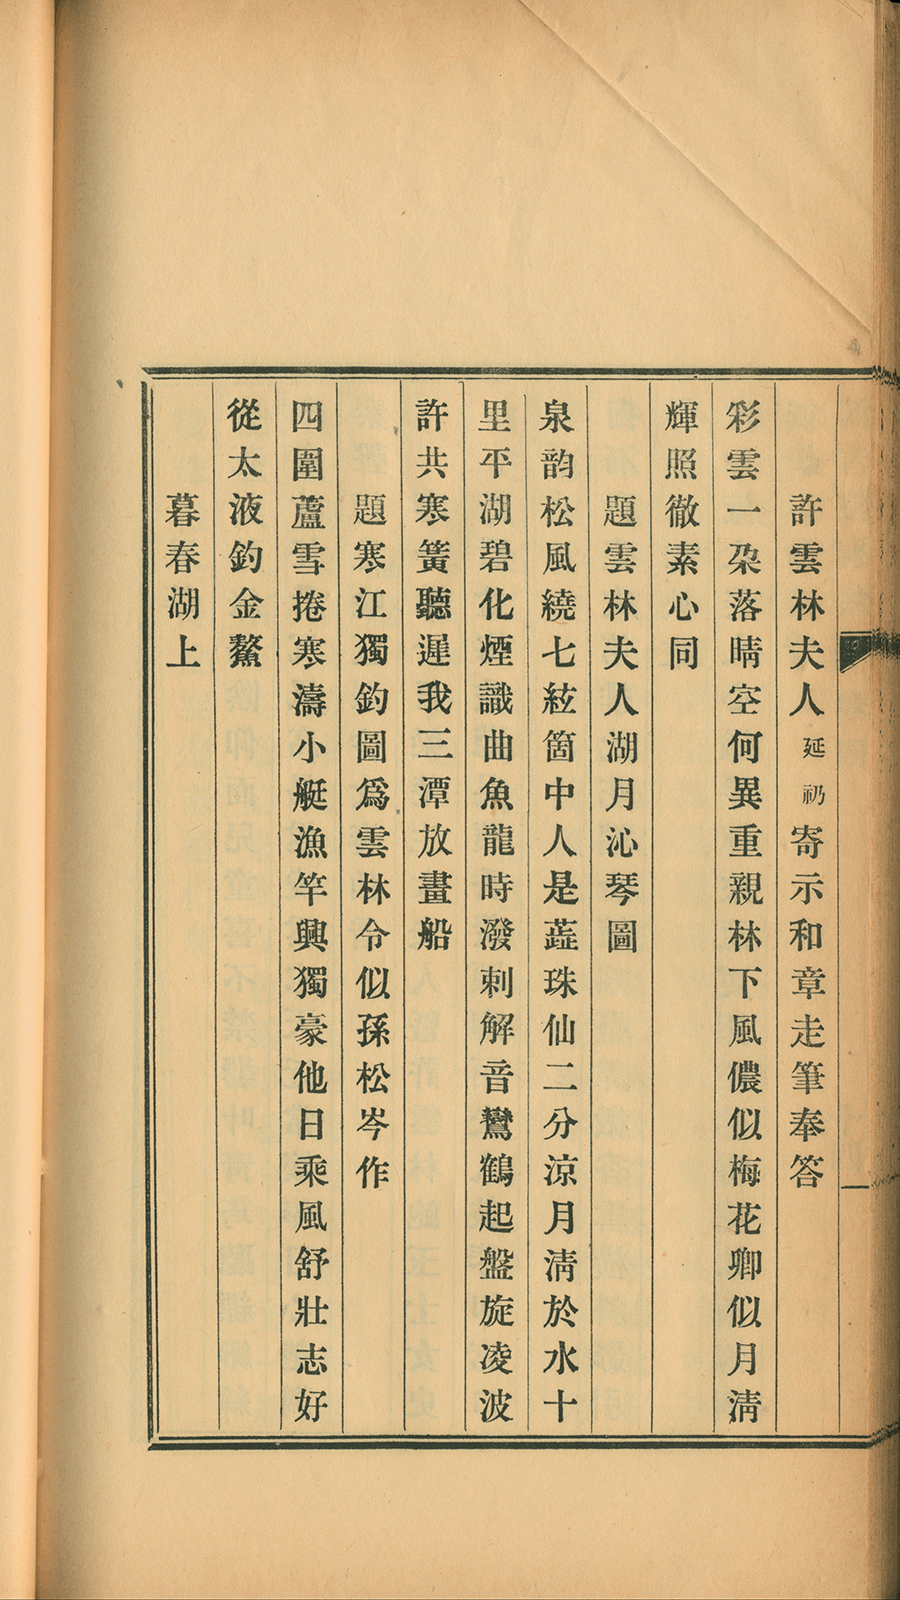 許雲林夫人延礽寄示和章走筆奉答
彩雲一朶落晴空何異重親林下風儂似梅花卿似月淸
輝照徹素心同
題雲林夫人湖月沁琴圖
泉韵松風繞七絃箇中人是蕋珠仙二分涼月淸於水十
里平湖碧化煙識曲魚龍時潑剌解音鸞鶴起盤旋凌波
許共寒簧聽遲我三潭放畫船
題寒江獨釣圖爲雲林令似孫松岑作
四圍蘆雪捲寒濤小艇漁竿興獨豪他日乘風舒壯志好
從太液釣金鰲
暮春湖上